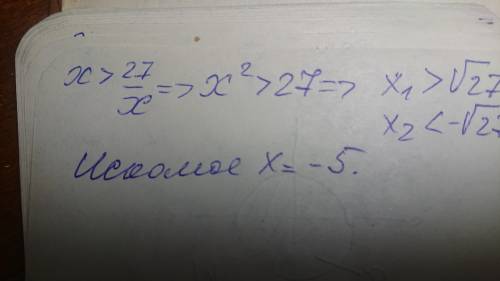 x > 27/x => x² > 27 => x₁ > √27
x₂ < -√27
Искомое x = -5.